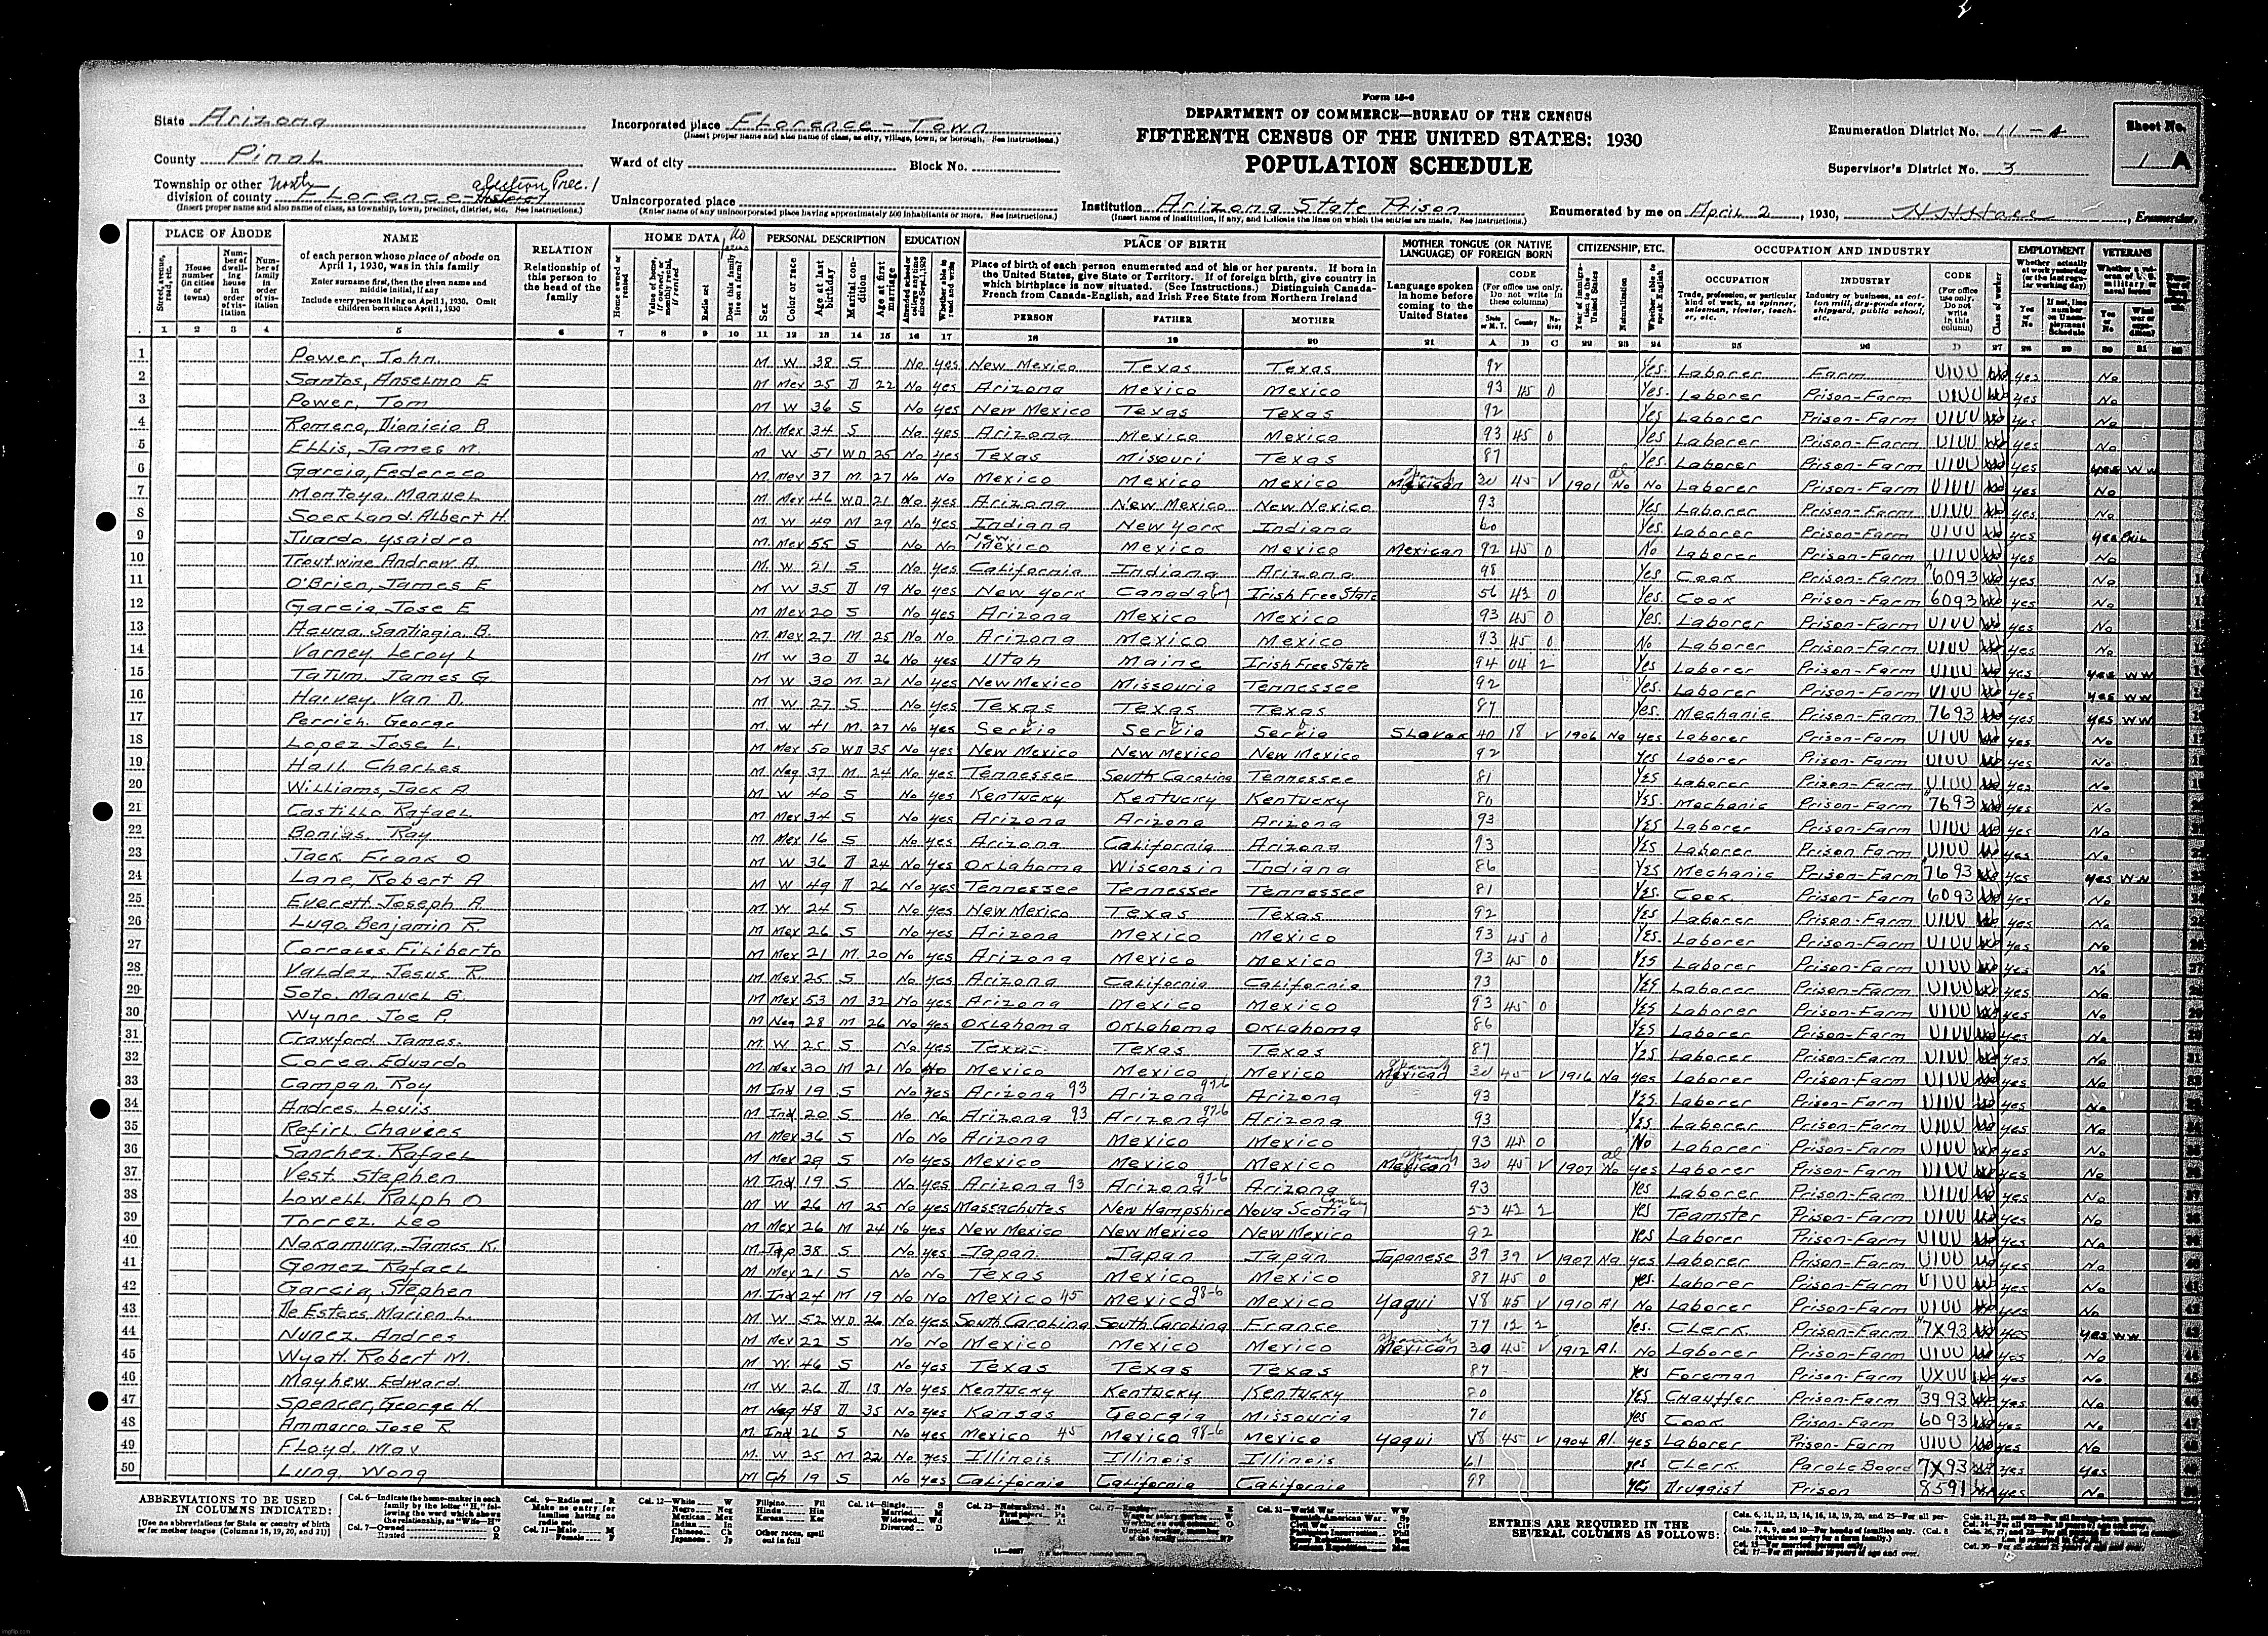 Form 15-6
DEPARTMENT OF COMMERCE—BUREAU OF THE CENSUS
FIFTEENTH CENSUS OF THE UNITED STATES: 1930
POPULATION SCHEDULE
State Arizona
County Pinal
Township or other division of county Florence
(Insert proper name and also name of class, as township, town, precinct, district, etc. See instructions.)
Incorporated place Florence - Town
(Insert proper name and also name of class, as city, village, town, or borough. See instructions.)
Ward of city Block No.
Unincorporated place
(Enter name of any unincorporated place having approximately 500 inhabitants or more. See instructions.)
Institution Arizona State Prison
(Insert name of institution, if any, and indicate the lines on which the entries are made. See instructions.)
Enumeration District No. 11-
Supervisor's District No. 3
Sheet No. 1 A
Enumerated by me on April 2, 1930, Enumerator.
PLACE OF ABODE NAME RELATION HOME DATA PERSONAL DESCRIPTION EDUCATION PLACE OF BIRTH MOTHER TONGUE (OR NATIVE LANGUAGE) OF FOREIGN BORN CITIZENSHIP, ETC. OCCUPATION AND INDUSTRY EMPLOYMENT VETERANS
of each person whose place of abode on April 1, 1930, was in this family
Enter surname first, then the given name and middle initial, if any
Include every person living on April 1, 1930. Omit children born since April 1, 1930
Relationship of this person to the head of the family
Place of birth of each person enumerated and of his or her parents. If born in the United States, give State or Territory. If of foreign birth, give country in which birthplace is now situated. (See Instructions.) Distinguish Canada-French from Canada-English, and Irish Free State from Northern Ireland
PERSON FATHER MOTHER
1 Power, John M W 38 S No yes New Mexico Texas Texas 92 Yes Laborer Farm yes No
2 Santos, Anselmo E M Mex 25 D 22 No yes Arizona Mexico Mexico 93 45 0 Yes Laborer Prison-Farm yes No
3 Power, Tom M W 36 S No yes New Mexico Texas Texas 92 Yes Laborer Prison-Farm yes No
4 Romero, Dionicio B M Mex 34 S No yes Arizona Mexico Mexico 93 45 0 Yes Laborer Prison-Farm yes No
5 Ellis, James M. M W 51 WD 25 No yes Texas Missouri Texas 87 Yes Laborer Prison-Farm yes yes WW
6 Garcia, Federeco M Mex 37 M 27 No No Mexico Mexico Mexico Mexican 30 45 V 1901 No No Laborer Prison-Farm yes No
7 Montoya, Manuel M Mex 46 WD 21 No yes Arizona New Mexico New Mexico 93 Yes Laborer Prison-Farm yes No
8 Albert H. M W 49 M 29 No yes Indiana New York Indiana 60 Yes Laborer Prison-Farm yes yes
9 Ysaidro M Mex 55 S No No New Mexico Mexico Mexico Mexican 92 45 0 No Laborer Prison-Farm yes No
10 Troutwine Andrew A. M W 21 S No yes California Indiana Arizona 98 Yes Cook Prison-Farm 6093 yes No
11 O'Brien, James E M W 35 D 19 No yes New York Canada Irish Free State 56 43 0 Yes Cook Prison-Farm 6093 yes No
12 Garcia, Jose E M Mex 20 S No yes Arizona Mexico Mexico 93 45 0 Yes Laborer Prison-Farm yes No
13 Acuna, Santiagio B. M Mex 27 M 25 No No Arizona Mexico Mexico 93 45 0 No Laborer Prison-Farm yes No
14 Varney Leroy L M W 30 D 26 No yes Utah Maine Irish Free State 94 04 2 Yes Laborer Prison-Farm yes yes WW
15 Tatum, James G. M W 30 M 21 No yes New Mexico Missouria Tennessee 92 Yes Laborer Prison-Farm yes yes WW
16 Harvey, Van D. M W 27 S No yes Texas Texas Texas 87 Yes Mechanic Prison-Farm 7693 yes yes WW
17 Perrich, George M W 41 M 27 No yes Serbia Serbia Serbia Slovak 40 18 V 1906 Na yes Laborer Prison-Farm yes No
18 Lopez Jose L. M Mex 50 WD 35 No yes New Mexico New Mexico New Mexico 92 Yes Laborer Prison-Farm yes No
19 Hall Charles M Neg 37 M 24 No yes Tennessee South Carolina Tennessee 81 Yes Laborer Prison-Farm yes No
20 Williams, Jack A. M W 40 S No yes Kentucky Kentucky Kentucky 80 Yes Mechanic Prison-Farm 7693 yes No
21 Castillo Rafael M Mex 34 S No yes Arizona Arizona Arizona 93 Yes Laborer Prison-Farm yes No
22 Ray M Mex 16 S No yes Arizona California Arizona 93 Yes Laborer Prison-Farm yes No
23 Jack Frank O M W 36 D 24 No yes Oklahoma Wisconsin Indiana 86 Yes Mechanic Prison-Farm 7693 yes yes WW
24 Lane, Robert A M W 49 D 26 No yes Tennessee Tennessee Tennessee 81 Yes Cook Prison-Farm 6093 yes No
25 Everett Joseph A. M W 24 S No yes New Mexico Texas Texas 92 Yes Laborer Prison-Farm yes No
26 Lugo, Benjamin R. M Mex 26 S No yes Arizona Mexico Mexico 93 45 0 Yes Laborer Prison-Farm yes No
27 Corrales Filiberto M Mex 21 M 20 No yes Arizona Mexico Mexico 93 45 0 Yes Laborer Prison-Farm yes No
28 Valdez, Jesus R. M Mex 25 S No yes Arizona California California 93 Yes Laborer Prison-Farm yes No
29 Soto, Manuel G. M Mex 53 M 32 No yes Arizona Mexico Mexico 93 45 0 Yes Laborer Prison-Farm yes No
30 Wynne Joe P. M Neg 28 M 26 No yes Oklahoma Oklahoma Oklahoma 86 Yes Laborer Prison-Farm yes No
31 Crawford James M W 25 S No yes Texas Texas Texas 87 Yes Laborer Prison-Farm yes No
32 Corea Eduardo M Mex 30 M 21 No No Mexico Mexico Mexico Mexican 30 45 V 1916 Na yes Laborer Prison-Farm yes No
33 Campan, Roy M Ind 19 S No yes Arizona 93 Arizona Arizona 93 Yes Laborer Prison-Farm yes No
34 Andres, Louis M Ind 20 S No No Arizona 93 Arizona Arizona 93 Yes Laborer Prison-Farm yes No
35 M Mex 36 S No No Arizona Mexico Mexico 93 45 0 No Laborer Prison-Farm yes No
36 Sanchez Rafael M Mex 29 S No yes Mexico Mexico Mexico Mexican 30 45 V 1907 No yes Laborer Prison-Farm yes No
37 Vest Stephen M Ind 19 S No yes Arizona 93 Arizona Arizona 93 yes Laborer Prison-Farm yes No
38 Lowell Ralph O M W 26 M 25 No yes Massachutes New Hampshire Nova Scotia 53 42 2 yes Teamster Prison-Farm yes No
39 Torrez Leo M Mex 26 M 24 No yes New Mexico New Mexico New Mexico 92 yes Laborer Prison-Farm yes No
40 Nakamura, James K. M Jap 38 S No yes Japan Japan Japan Japanese 39 V 1907 Na yes Laborer Prison-Farm yes No
41 Gomez Rafael M Mex 21 S No No Texas Mexico Mexico 87 45 0 yes Laborer Prison-Farm yes No
42 Garcia, Stephen M Ind 24 M 19 No No Mexico 45 Mexico 98-6 Mexico Yaqui V8 45 V 1910 Al No Laborer Prison-Farm yes No
43 De Esters, Marion L. M W 52 WD 26 No yes South Carolina South Carolina France 77 12 2 Yes Clerk Prison-Farm 7X93 yes yes WW
44 Nunez, Andres M Mex 22 S No No Mexico Mexico Mexico Mexican 30 45 V 1912 Al. No Laborer Prison-Farm yes No
45 Wyatt Robert M. M W 46 S No yes Texas Texas Texas 87 yes Foreman Prison-Farm yes No
46 Mayhew Edward M W 26 D 13 No yes Kentucky Kentucky Kentucky 80 yes Chauffer Prison-Farm 3993 yes No
47 Spencer, George H M Neg 48 D 35 No yes Kansas Georgia Missouria 70 yes Cook Prison-Farm 6093 yes No
48 Ammarro, Jose R. M Ind 26 S No yes Mexico 45 Mexico 98-6 Mexico Yaqui V8 45 V 1904 Al. yes Laborer Prison-Farm yes No
49 Floyd, Max M W 25 M 22 No yes Illinois Illinois Illinois 61 yes Clerk Parole Board 7X93 yes yes
50 Lung, Wong M Ch 19 S No yes California California California 98 yes Druggist Prison 8591 yes No
ABBREVIATIONS TO BE USED IN COLUMNS INDICATED:
[Use no abbreviations for State or country of birth or for mother tongue (Columns 18, 19, 20, and 21)]
ENTRIES ARE REQUIRED IN THE SEVERAL COLUMNS AS FOLLOWS:
imgflip.com